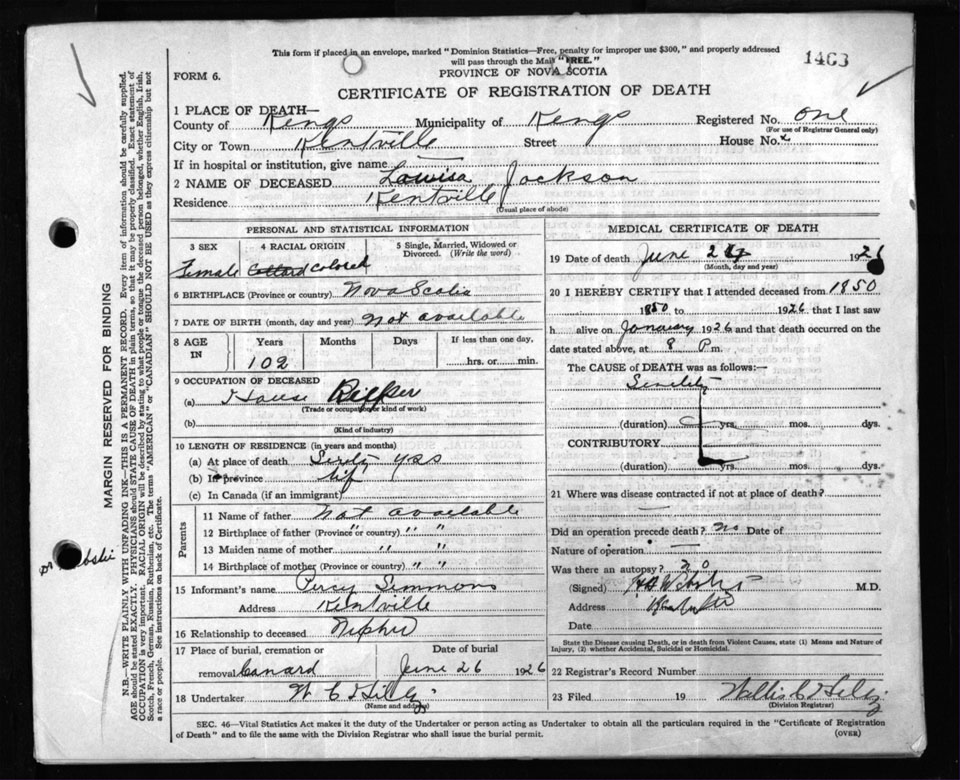 This form if placed in an envelope, marked "Dominion Statistics—Free, penalty for improper use $300," and properly addressed
will pass through the Mail "FREE."
1463
FORM 6.
PROVINCE OF NOVA SCOTIA
CERTIFICATE OF REGISTRATION OF DEATH
1 PLACE OF DEATH—
County of Kings Municipality of Kings Registered No. one
(For use of Registrar General only)
City or Town Kentville Street House No.
If in hospital or institution, give name —
2 NAME OF DECEASED Louisa Jackson
Residence Kentville
(Usual place of abode)
PERSONAL AND STATISTICAL INFORMATION
3 SEX 4 RACIAL ORIGIN 5 Single, Married, Widowed or Divorced. (Write the word)
Female colored
6 BIRTHPLACE (Province or country) Nova Scotia
7 DATE OF BIRTH (month, day and year) Not available
8 AGE IN Years Months Days If less than one day,
102 hrs. or min.
9 OCCUPATION OF DECEASED
(a) House
(Trade or occupation or kind of work)
(b)
(Kind of industry)
10 LENGTH OF RESIDENCE (in years and months)
(a) At place of death Sixty yrs
(b) In province life
(c) In Canada (if an immigrant)
Parents
11 Name of father Not available
12 Birthplace of father (Province or country) " "
13 Maiden name of mother " "
14 Birthplace of mother (Province or country) " "
15 Informant's name Percy Simmons
Address Kentville
16 Relationship to deceased Nephew
17 Place of burial, cremation or Date of burial
removal Canard June 26 1926
18 Undertaker
(Name and address)
MEDICAL CERTIFICATE OF DEATH
19 Date of death June 1926
(Month, day and year)
20 I HEREBY CERTIFY that I attended deceased from 1850
1850 to 1926 that I last saw
h alive on January 1926 and that death occurred on
date stated above, at 8 P m.
The CAUSE OF DEATH was as follows:—
Senility
(duration) yrs. mos. dys.
CONTRIBUTORY
(duration) yrs. mos. dys.
21 Where was disease contracted if not at place of death?
—
Did an operation precede death? no Date of
Nature of operation —
Was there an autopsy? no
(Signed) M.D.
Address
Date
State the Disease causing Death, or in death from Violent Causes, state (1) Means and Nature of
Injury, (2) whether Accidental, Suicidal or Homicidal.
22 Registrar's Record Number
23 Filed 19
(Division Registrar)
SEC. 46—Vital Statistics Act makes it the duty of the Undertaker or person acting as Undertaker to obtain all the particulars required in the "Certificate of Registration
of Death" and to file the same with the Division Registrar who shall issue the burial permit.
(OVER)
MARGIN RESERVED FOR BINDING
N.B.—WRITE PLAINLY WITH UNFADING INK—THIS IS A PERMANENT RECORD. Every item of information should be carefully supplied.
AGE should be stated EXACTLY. PHYSICIANS should STATE CAUSE OF DEATH in plain terms, so that it may be properly classified. Exact statement of
OCCUPATION is very important. RACIAL ORIGIN will be described by stating to what people or tongue the deceased person belonged, whether English, Irish,
Scotch, French, German, Russian, Ruthenian, etc. The terms "AMERICAN" or "CANADIAN" SHOULD NOT BE USED as they express citizenship but not
a race or people. See instructions on back of Certificate.